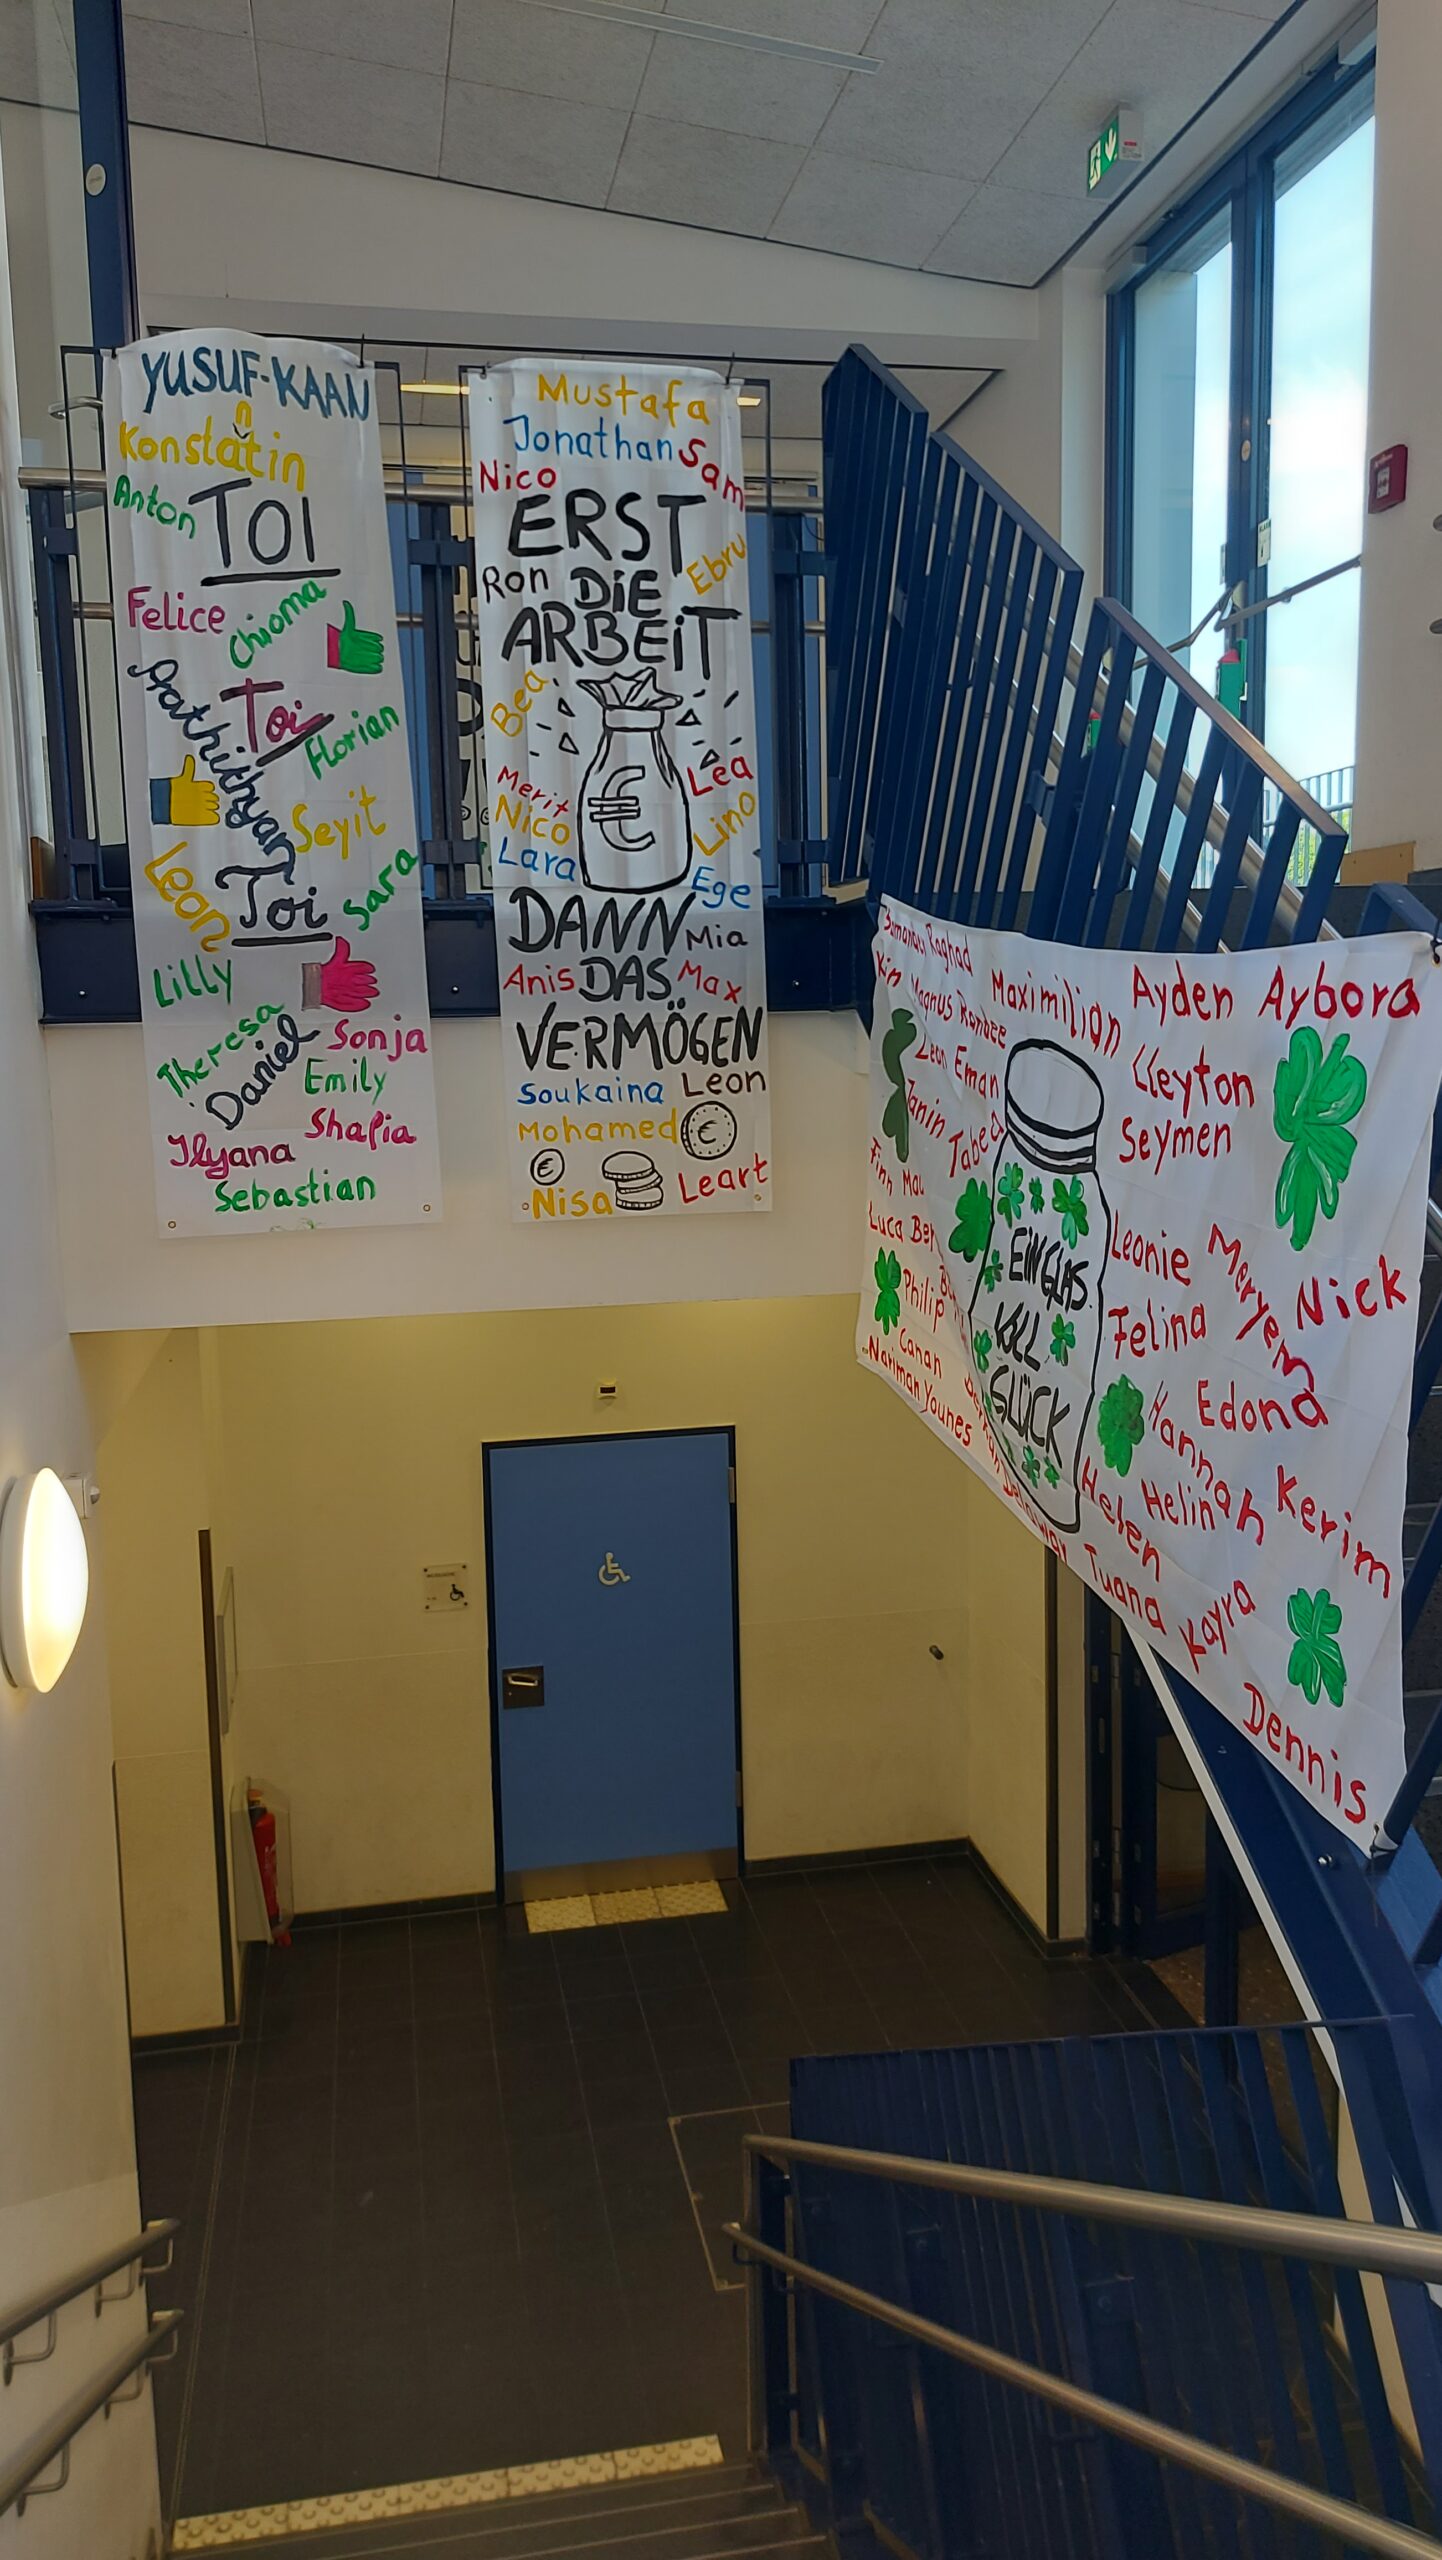 YUSUF-KAAN
Konstatin
n
Anton
TOI
Felice
Chioma
Toi
Prathithyan
Florian
Seyit
Lean
Toi
Sara
Lilly
Theresa
Daniel
Sonja
Emily
Shafia
Ilyana
Sebastian
Mustafa
Jonathan
Sam
Nico
ERST
Ron
DiE
Ebru
ARBEiT
Bea
Lea
Merit
Nico
Lino
Lara
Ege
€
DANN
Mia
Anis
DAS
Max
VERMÖGEN
Soukaina
Leon
Mohamed
€
€
Nisa
Leart
Raghad
Kim Magnus
Maximilian
Ayden Aybora
Leon Eman
Lleyton
Janin
Seymen
Finn
Luca
Leonie
Meryem
Nick
Philip
Felina
Canan
Edona
Nariman Younes
Hannah
Kerim
Helin
Helen
Tuana
Kayra
Dennis
EiN GLAS
VOLL
GLÜCK